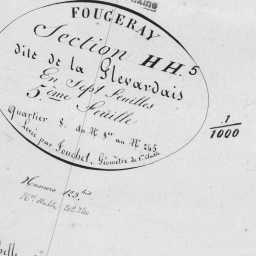 FOUGERAY
Section HH. 5
dite de la Glevardais
En Sept feuilles
5ème Feuille
Quartier S. du Nº 1er au Nº 265
Levé par Fouchet, Géomètre de 1re Classe
1/1000
Numéro 123 bis